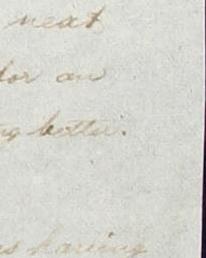 neat
for an
ng better.
s having